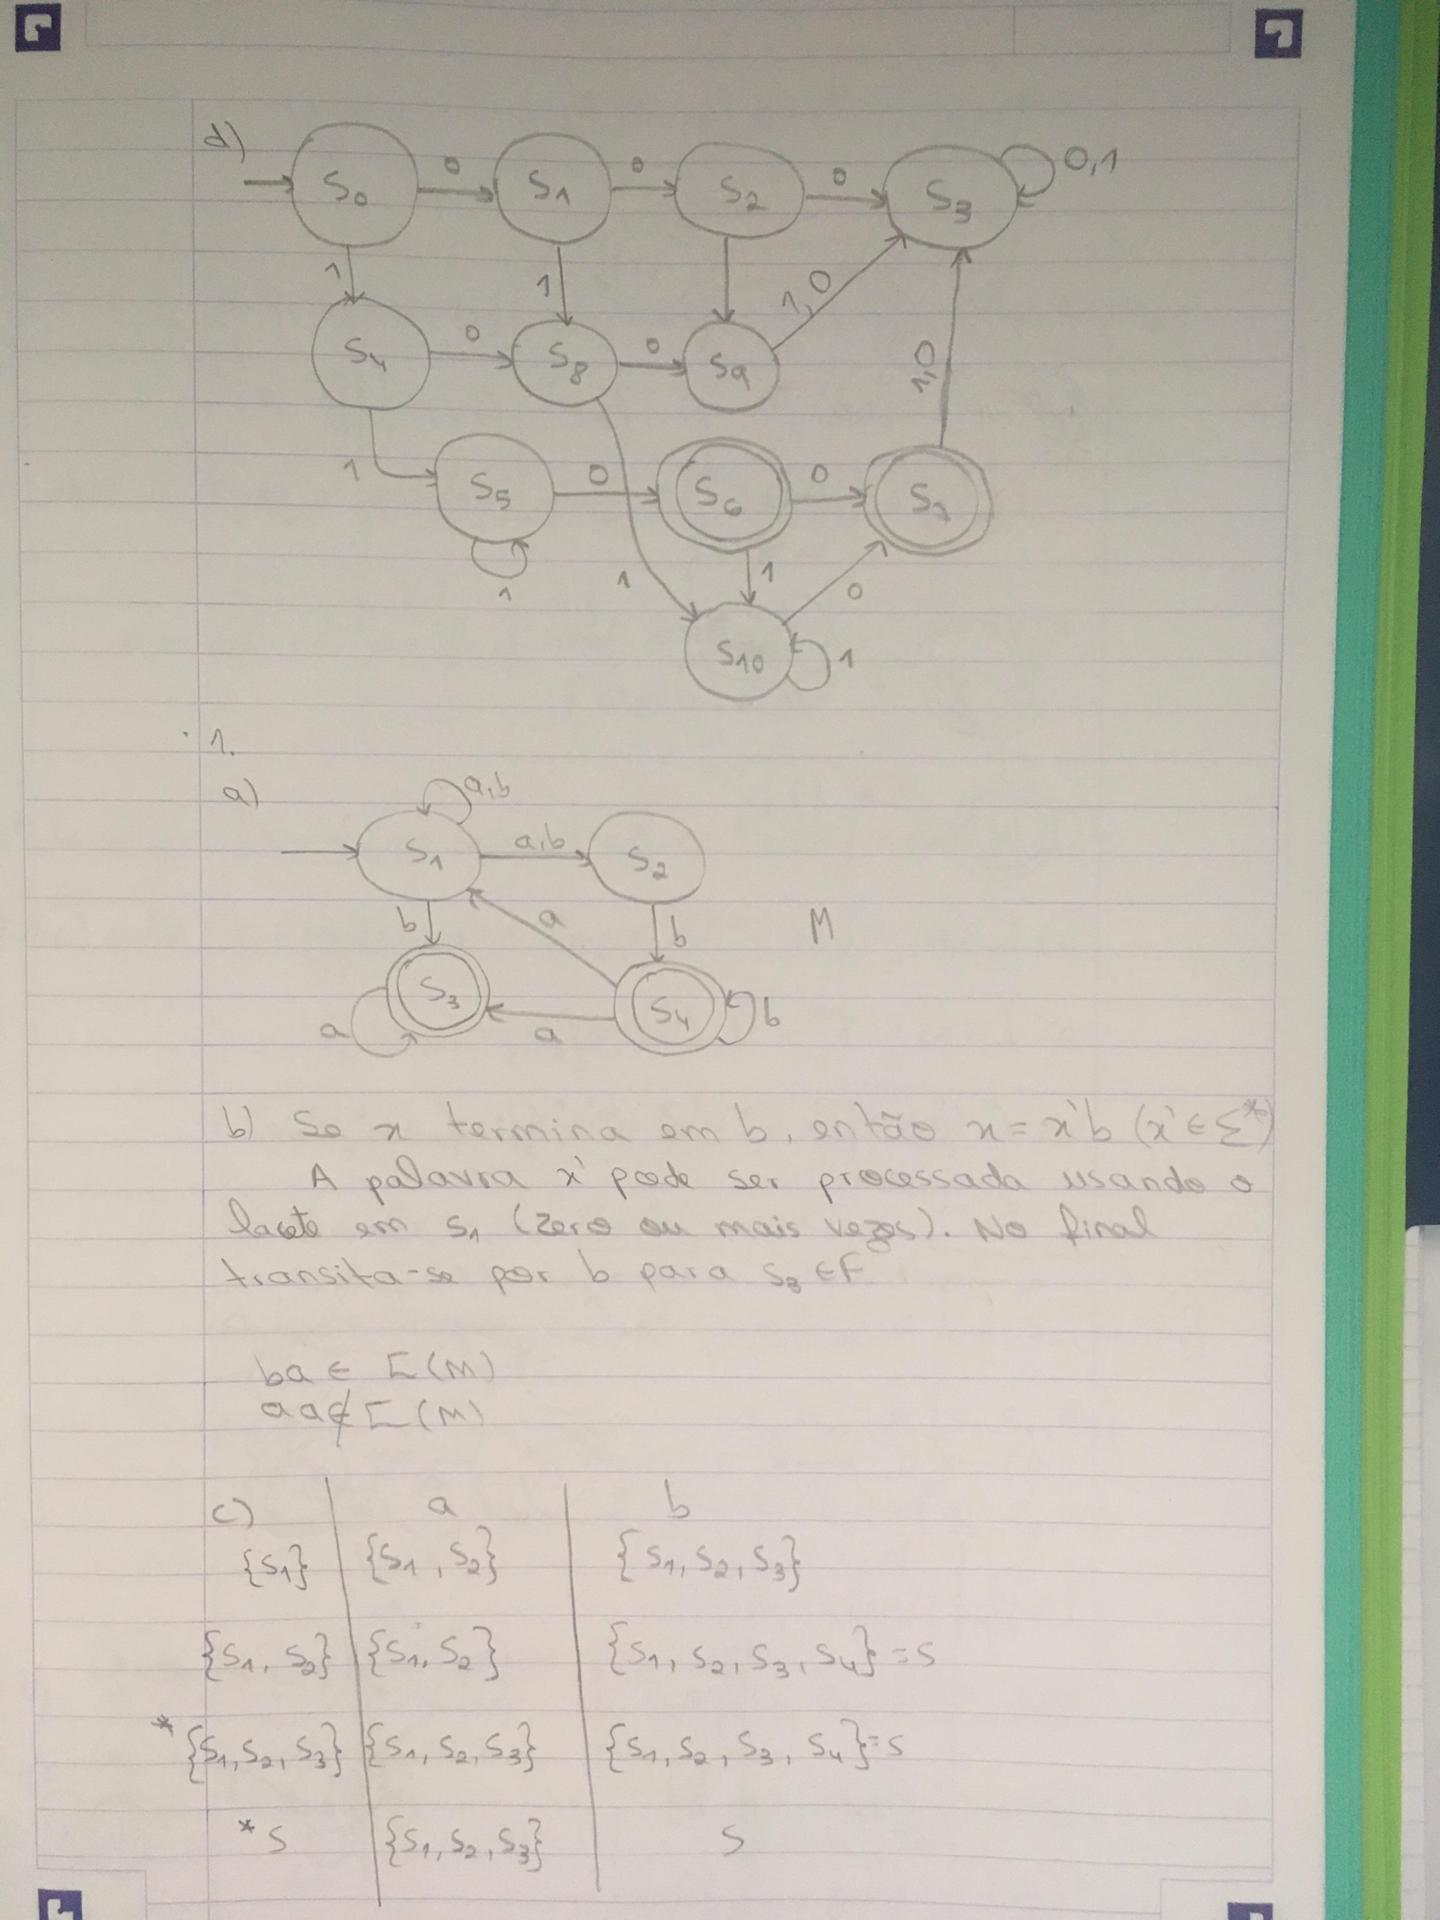 d)
S0 0 S1 0 S2 0 S3 0,1
1 1 1,0
S4 0 S8 0 S9 1,0
1 S5 0 S6 0 S7
1 1 1 0
S10 1
1.
a) a,b
S1 a,b S2
b a b M
S3 S4 b
a a
b) Se x termina em b, então x = x'b (x' ∈ Σ*)
A palavra x' pode ser processada usando o
lacete em s1 (zero ou mais vezes). No final
transita-se por b para s3 ∈ F
ba ∈ L(M)
aa ∉ L(M)
c) a b
{S1} {S1, S2} {S1, S2, S3}
{S1, S2} {S1, S2} {S1, S2, S3, S4} = S
* {S1, S2, S3} {S1, S2, S3} {S1, S2, S3, S4} = S
* S {S1, S2, S3} S